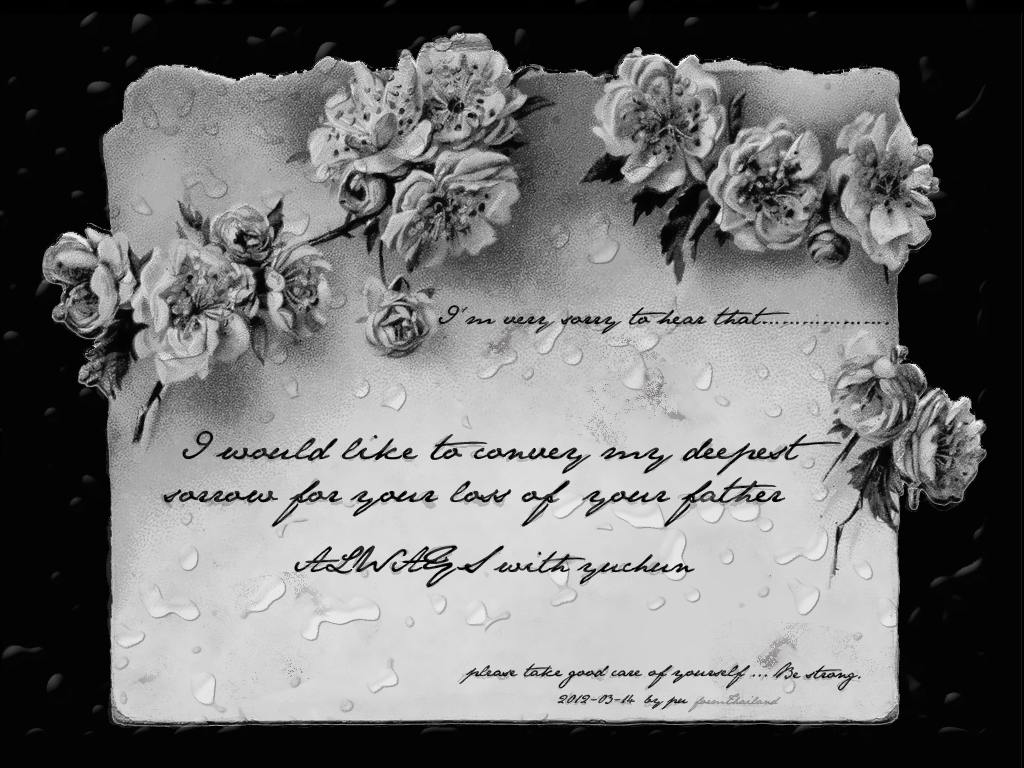 I'm very sorry to hear that..................
I would like to convey my deepest
sorrow for your loss of your father
ALWAYS with yuchun
please take good care of yourself ... Be strong.
2012-03-14 by pu